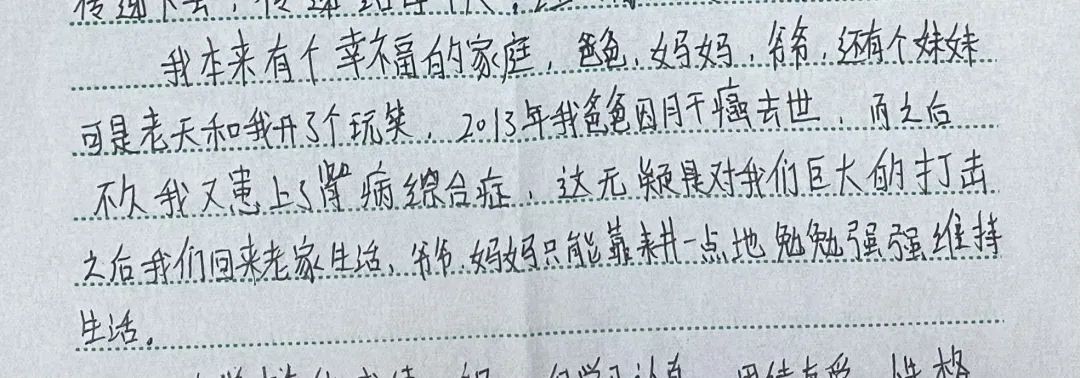 我本来有个幸福的家庭，爸爸，妈妈，爷爷，还有个妹妹
可是老天和我开了个玩笑，2013年我爸爸因肝癌去世，而之后
不久我又患上了肾病综合症，这无疑是对我们巨大的打击
之后我们回来老家生活，爷爷，妈妈只能靠耕一点地勉勉强强维持
生活。